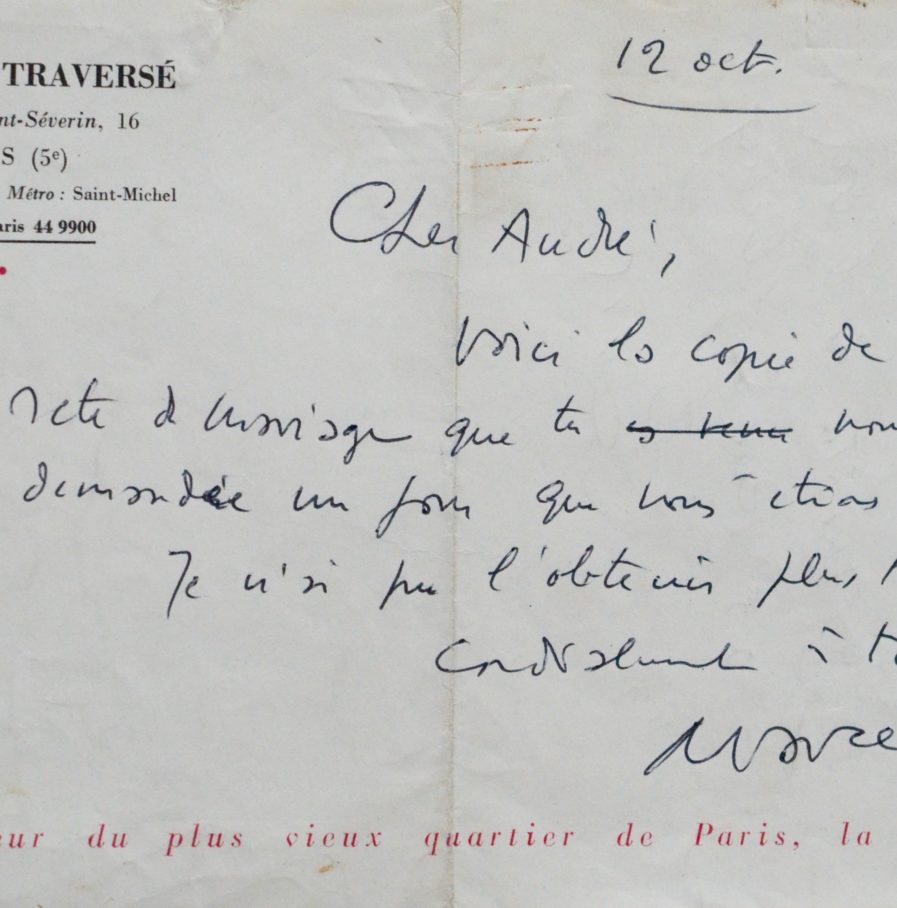 TRAVERSÉ
nt-Séverin, 16
S (5e)
Métro : Saint-Michel
aris 44 9900
12 oct.
Cher André,
Voici la copie de
acte d mariage que tu nou
demandée un jour que nous étions
Je n'ai pu l'obtenir plus t
Cordialement à t
Marce
eur du plus vieux quartier de Paris, la